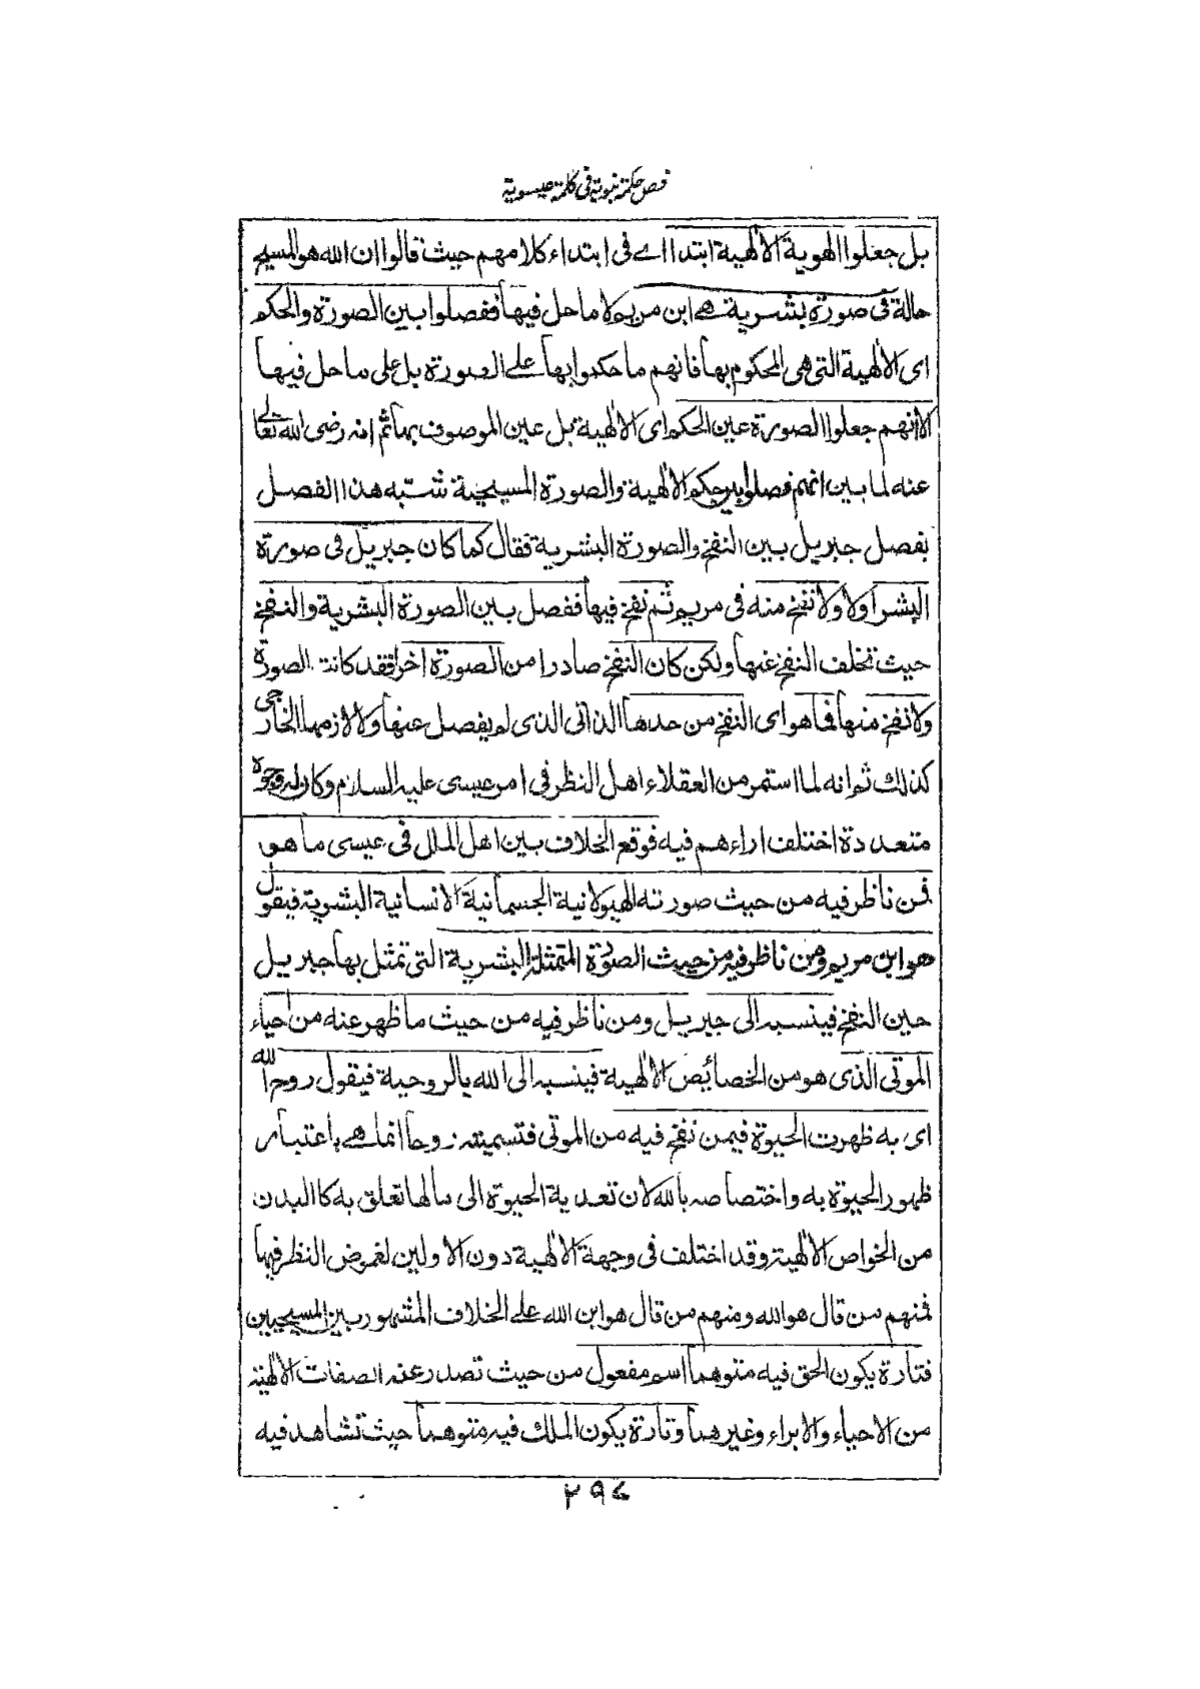 فص حكمة نبوية في كلمة عيسوية
بل جعلوا الهوية الالٰهية ابتداءً اے فى ابتداء كلامهم حيث قالوا ان الله هو المسيح
حالة فى صورة بشرية هے ابن مريم لا ما حل فيها ففصلوا بين الصورة والحكم
اى الالٰهية التى هى المحكوم بها فانهم ما حكموا بها علے الصورة بل على ما حل فيها
لا انهم جعلوا الصورة عين الحكم اى الالٰهية بل عين الموصوف بها ثم انه رضى الله تعالى
عنه لما بين انهم فصلوا بين حكم الالٰهية والصورة المسيحية شبّه هذا الفصل
بفصل جبريل بين النفخ والصورة البشرية فقال كما كان جبريل فى صورة
البشر اولا ولا نفخ منه فى مريم ثم نفخ فيها ففصل بين الصورة البشرية والنفخ
حيث تخلف النفخ عنها ولكن كان النفخ صادرا من الصورة اخرا فقد كانت الصورة
ولا نفخ منها فما هو اى النفخ من حدها الذاتى الذى لم يفصل عنها ولا لازمها الخارجى
كذلك ثم انه لما استمر من العقلاء اهل النظر فى امر عيسى عليه السلام وكان له وجوه
متعددة اختلف اراءهم فيه فوقع الخلاف بين اهل الملل فى عيسى ما هو
فمن ناظر فيه من حيث صورته الهيولانية الجسمانية الانسانية البشرية فيقول
هو ابن مريم ومن ناظر فيه من حيث الصورة المتمثلة البشرية التى تمثل بها جبريل
حين النفخ فينسبه الى جبريل ومن ناظر فيه من حيث ما ظهر عنه من احياء
الموتى الذى هو من الخصائص الالٰهية فينسبه الى الله بالروحية فيقول روح الله
اى به ظهرت الحيوة فيمن نفخ فيه من الموتى فتسميته روحا انما هے باعتبار
ظهور الحيوة به واختصاصه بالله لان تعدية الحيوة الى مالها تعلق به كالبدن
من الخواص الالٰهية وقد اختلف فى وجهة الالٰهية دون الاولين لغمض النظر فيها
فمنهم من قال هو الله ومنهم من قال هو ابن الله علے الخلاف المشهور بين المسيحيين
فتارة يكون الحق فيه متوهما اسم مفعول من حيث تصدر عنه الصفات الالٰهية
من الاحياء والابراء وغيرهما وتارة يكون الملك فيه متوهما حيث تشاهد فيه